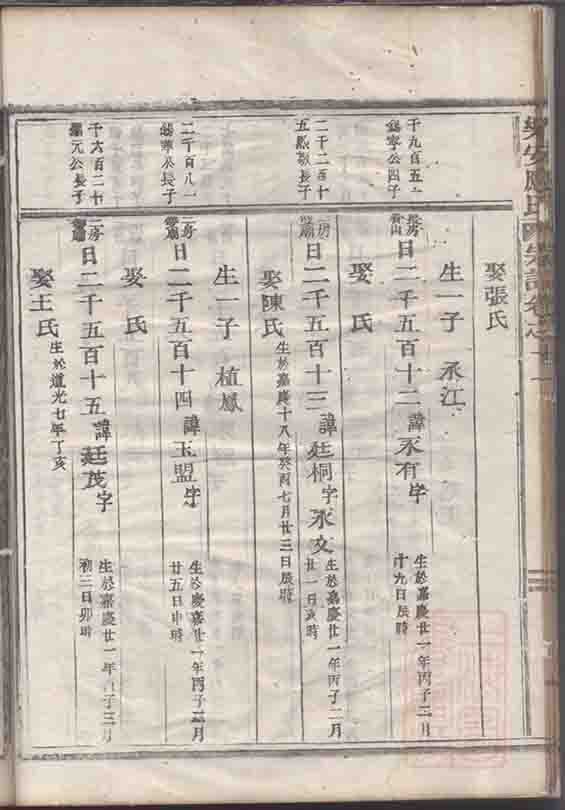 樂安應氏 宗譜卷之十一
娶張氏
生一子 永江
千九百五
錫寧公四子
長房
日二千五百十二 諱永有字
生於嘉慶廿一年丙子二月
十九日辰時
娶 氏
二千二百十
五 長子
二房
日二千五百十三 諱廷桐字永文
生於嘉慶廿一年丙子二月
廿一日亥時
娶陳氏
生於嘉慶十八年癸酉七月廿三日辰時
生一子 植鳳
二千百八
公長子
二房
日二千五百十四 諱玉盟字
生於嘉慶廿一年丙子 月
廿五日申時
娶 氏
千六百二十
元公長子
二房
日二千五百十五 諱廷茂字
生於嘉慶廿一年丙子三月
初三日卯時
娶王氏
生於道光七年丁亥